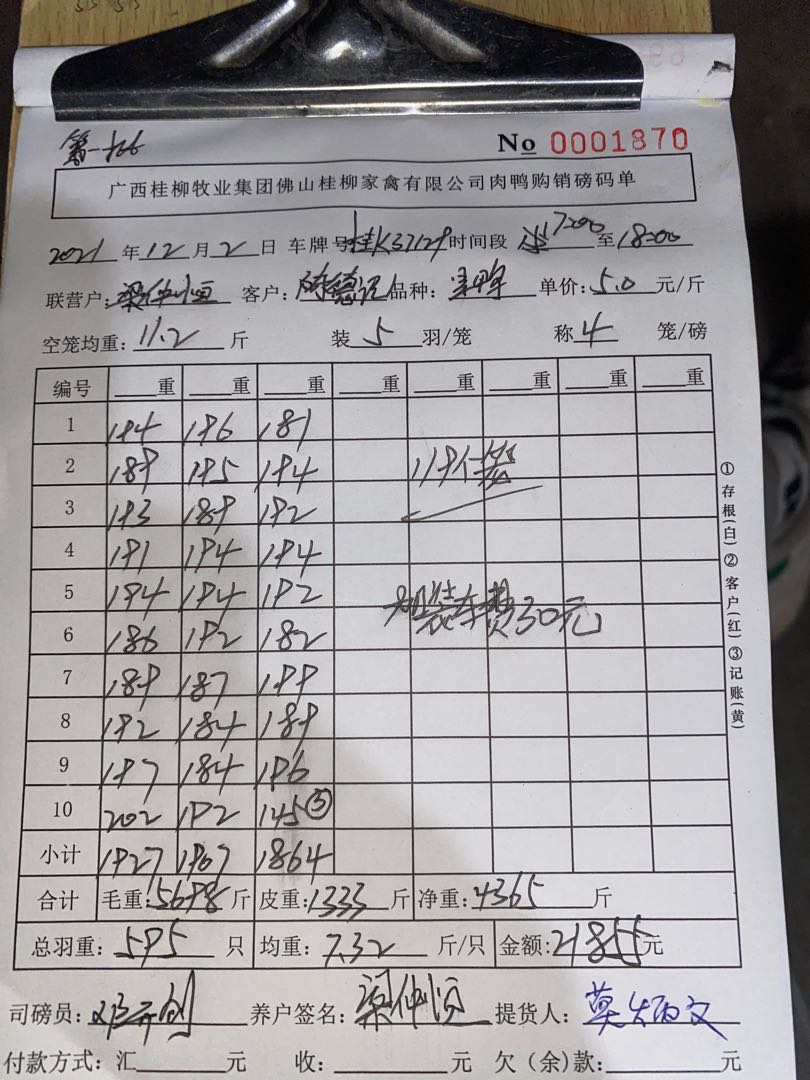 第一批
No 0001870
广西桂柳牧业集团佛山桂柳家禽有限公司肉鸭购销磅码单
2021 年 12 月 2 日 车牌号 桂K37129 时间段 17:00 至 18:00
联营户: 梁仲恒 客户: 陈德记 品种: 单价: 5.0 元/斤
空笼均重: 11.2 斤 装 5 羽/笼 称 4 笼/磅
编号 ___重 ___重 ___重 ___重 ___重 ___重 ___重 ___重
1 194 196 181
2 189 195 194 119付笼
3 193 189 192
4 191 194 194
5 194 194 192 加装车费30元
6 186 192 182
7 189 187 199
8 192 184 189
9 197 184 196
10 202 192 145③
小计 1927 1907 1864
合计 毛重: 5698 斤 皮重: 1333 斤 净重: 4365 斤
总羽重: 595 只 均重: 7.32 斤/只 金额: 21855 元
司磅员: 养户签名: 梁仲恒 提货人: 莫炳文
付款方式: 汇______元 收: ______元 欠(余)款: ______元
①存根(白)②客户(红)③记账(黄)